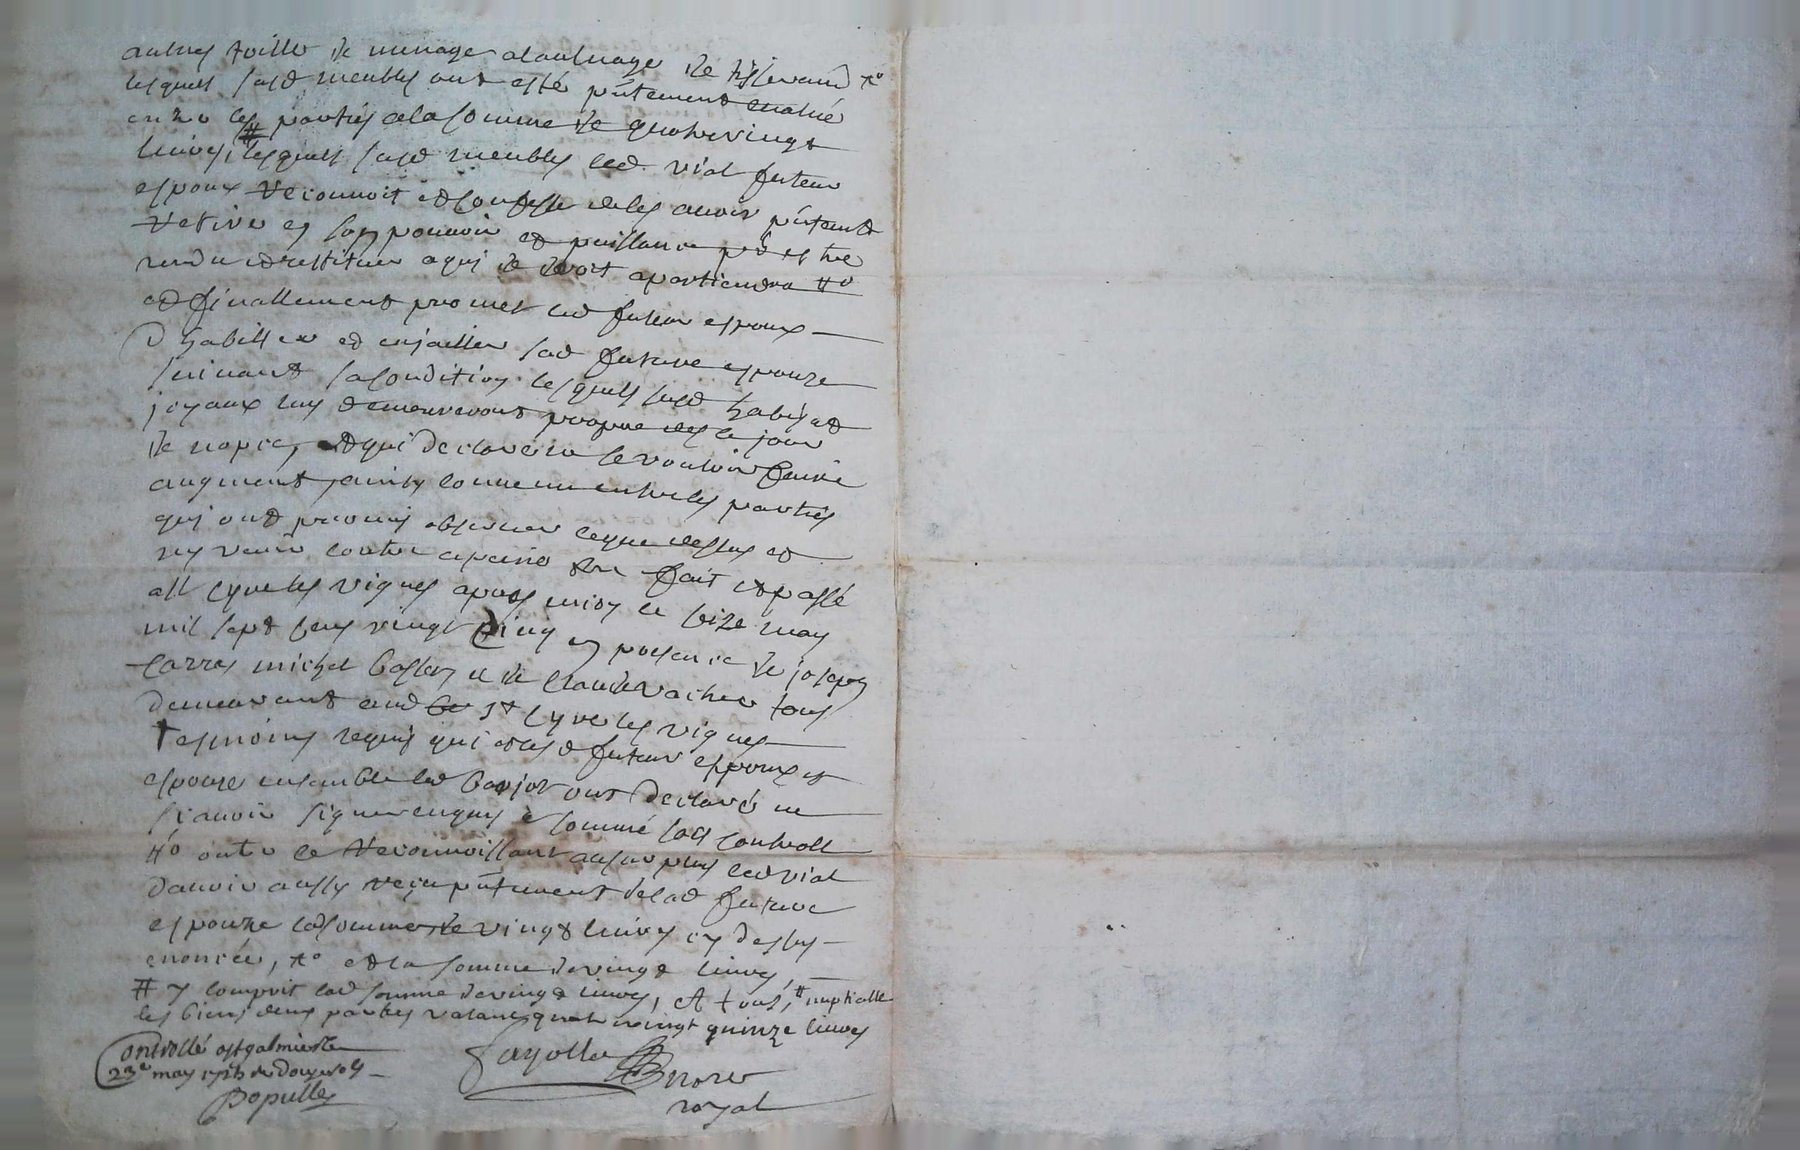 autres toille de menage alaulnage de tisserand #º
lesquels susd meubles ont esté pñtement
entre les parties a la somme de quatrevingt
livres, lesquels susd meubles led. vial futeur
espoux reconnoit et confesse de les avoir pñtemt
retiré en son pouvoir et puissance pr estre
rendu et restituer a qui de droit apartiendra #º
et finallement promet led futeur espoux
d habiller et enjoailler lad future espouze
suivant sa condition lesquels susd habis et
joyaux luy demeureront propre des le jour
de nopce, et qui declarérer le vouloir faire
augment, ainsy convenu entre les parties
qui ont promis observer ce que dessus et
ny venir contre a peine &re fait et passé
a St Cyre les vignes apres midy le seize may
mil sept cens vingt cinq en presence de joseph
michel et de Claude vacher tous
demeurant aud St Cyre les vignes
tesmoins requis qui et lesd futeur espoux et
espouze ensemble led ont declaré ne
scavoir signer enquis é sommé soit controllé
#º outre ce reconnoissant led vial
davoir aussy reçu pñtement de lad future
espouze lad somme de vingt livres cy dessus
enoncée, #º et la somme de vingt livres,
# y comprit lad somme de vingt livres, et tous, # nuptialle
les biens deux parties valant quatrevingt quinze livres
Controllé a St galmier le
23e may 1725 R douze sols
Populle
fayolle
nore
royal